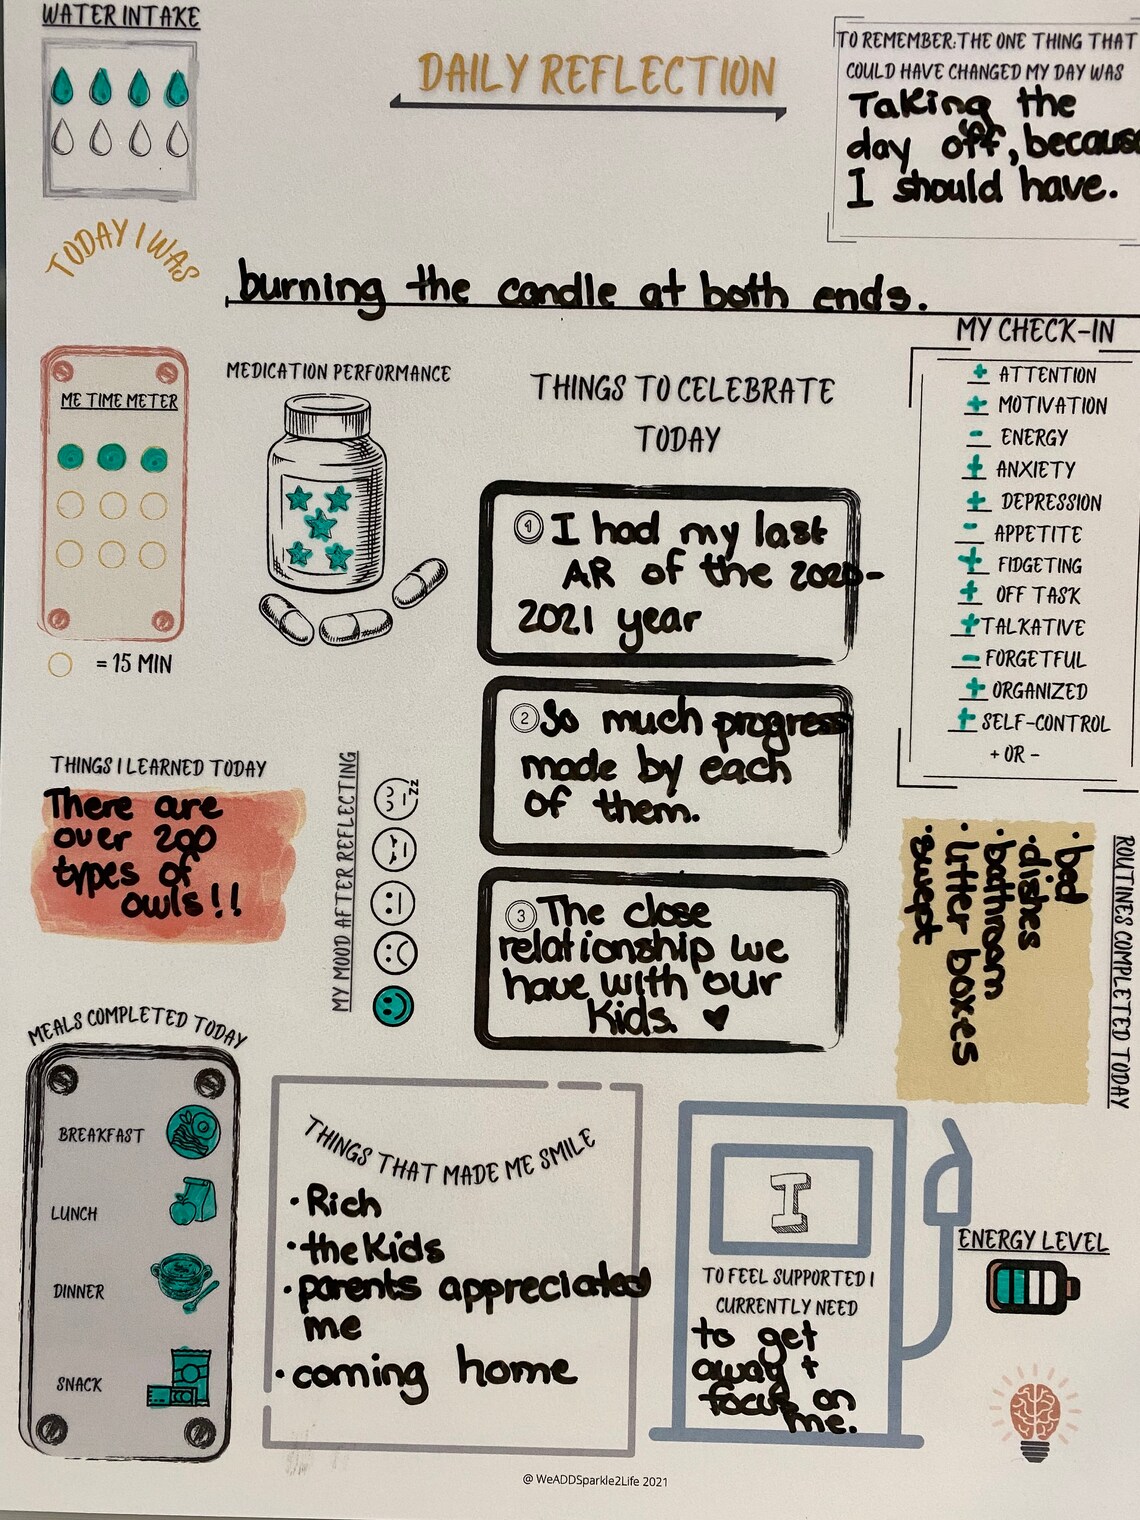 WATER INTAKE
DAILY REFLECTION
TO REMEMBER: THE ONE THING THAT
COULD HAVE CHANGED MY DAY WAS
Taking the
day off, because
I should have.
TODAY I WAS
burning the candle at both ends.
ME TIME METER
= 15 MIN
MEDICATION PERFORMANCE
THINGS TO CELEBRATE
TODAY
1 I had my last
AR of the 2020-
2021 year
2 So much progress
made by each
of them.
3 The close
relationship we
have with our
Kids. ♥
MY CHECK-IN
+ ATTENTION
+ MOTIVATION
- ENERGY
+ ANXIETY
+ DEPRESSION
- APPETITE
+ FIDGETING
+ OFF TASK
+ TALKATIVE
- FORGETFUL
+ ORGANIZED
+ SELF-CONTROL
+ OR -
THINGS I LEARNED TODAY
There are
over 200
types of
owls!!
MY MOOD AFTER REFLECTING
zz
ROUTINES COMPLETED TODAY
• bed
• dishes
• bathroom
• litter boxes
• swept
MEALS COMPLETED TODAY
BREAKFAST
LUNCH
DINNER
SNACK
THINGS THAT MADE ME SMILE
• Rich
• the Kids
• parents appreciated
me
• coming home
I
TO FEEL SUPPORTED I
CURRENTLY NEED
to get
away +
focus on
me.
ENERGY LEVEL
@ WeADDSparkle2Life 2021